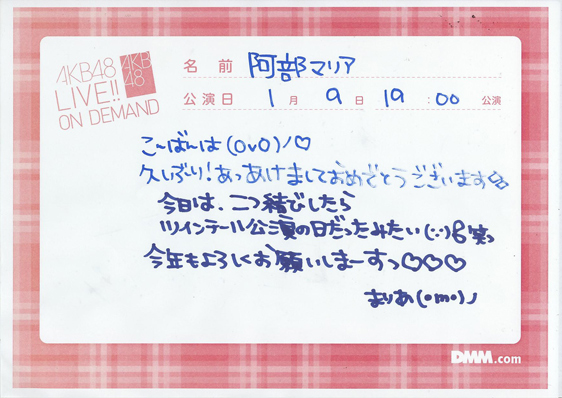 AKB48
LIVE!!
ON DEMAND
AKB
48
名前 阿部マリア
公演日 1月9日 19:00 公演
こ〜ばんは(OvO)ノ♡
久しぶり!あっあけましておめでとうございます
今日は、二つ結びしたら
ツインテール公演の日だったみたい(:;)笑っ
今年もよろしくお願いしまーすっ♡♡♡
まりあ(omo)ノ
DMM.com